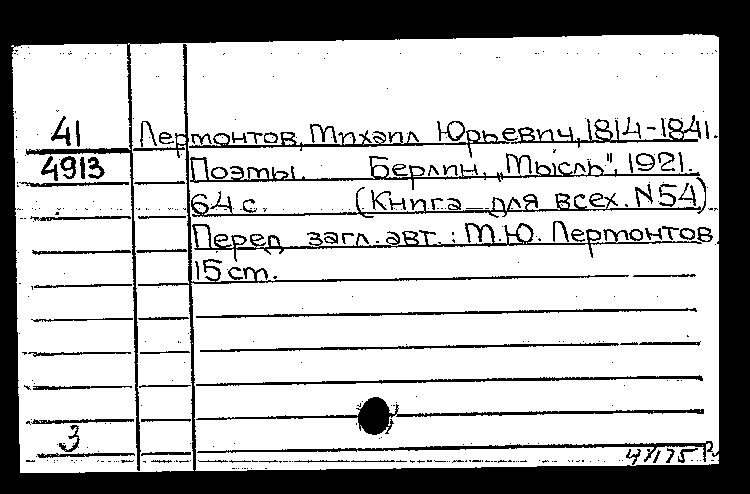 41 Лермонтов, Михаил Юрьевич, 1814-1841.
4913 Поэты. Берлин, „Мысль", 1921.
64 с. (Книга для всех. N54)
Перед загл. авт.: М.Ю. Лермонтов.
15 cm.
3